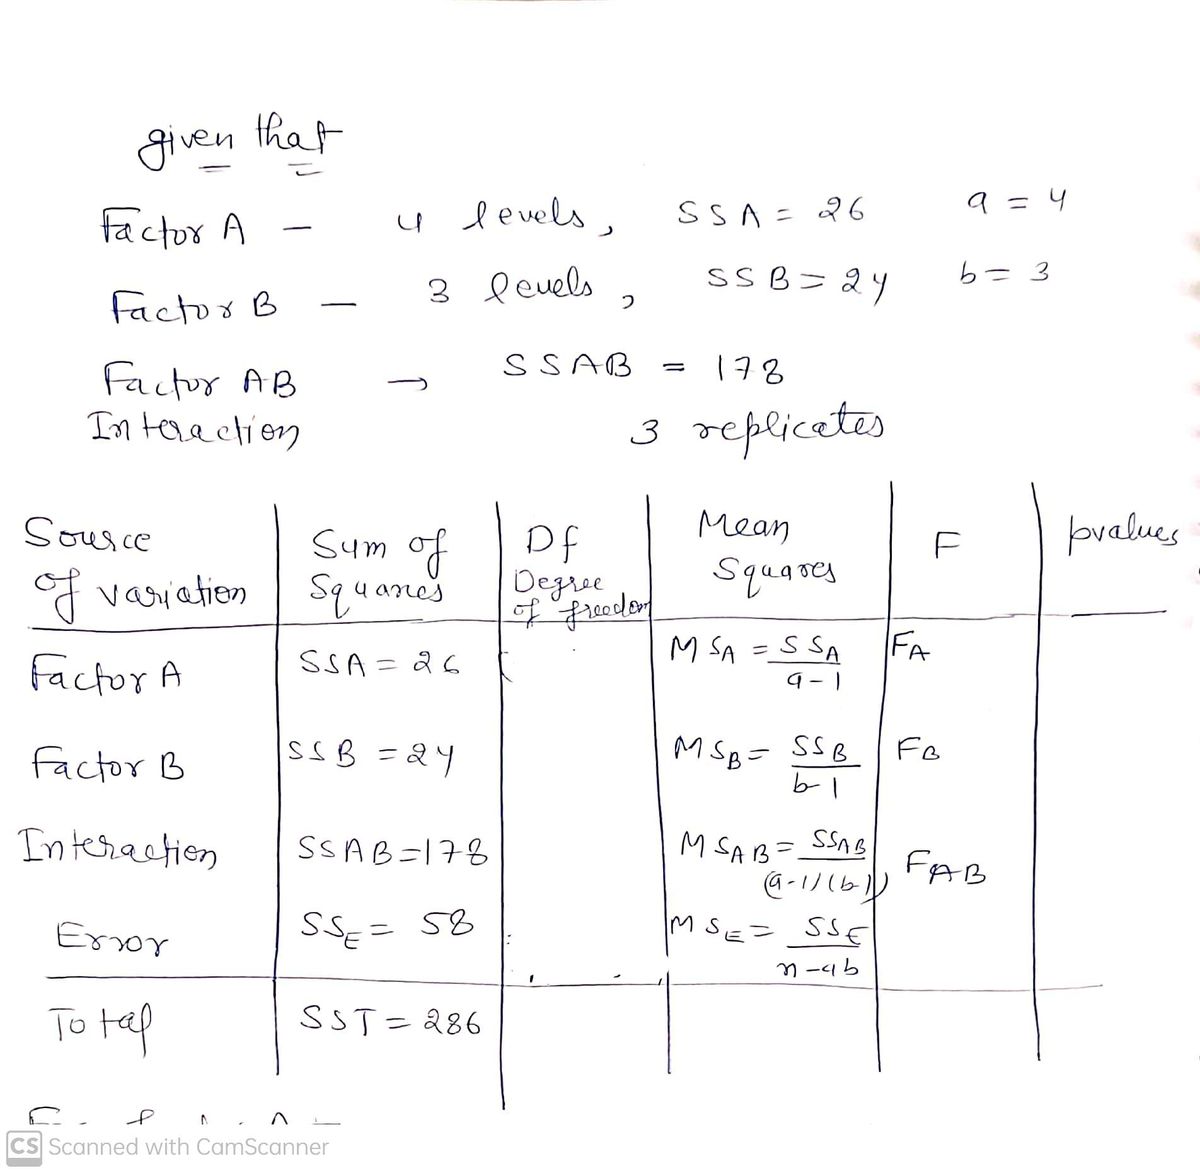 given that
Factor A – 4 levels, SSA = 26 a = 4
Factor B – 3 levels, SSB = 24 b = 3
Factor AB → SSAB = 178
Interaction 3 replicates
Source of variation | Sum of Squares | Df Degree of freedom | Mean Squares | F | pvalues
Factor A | SSA = 26 | MSA = SSA / a-1 | FA
Factor B | SSB = 24 | MSB = SSB / b-1 | FB
Interaction | SSAB=178 | MSAB = SSAB / (a-1)(b-1) | FAB
Error | SSE = 58 | MSE = SSE / n-ab
Total | SST = 286
CS Scanned with CamScanner